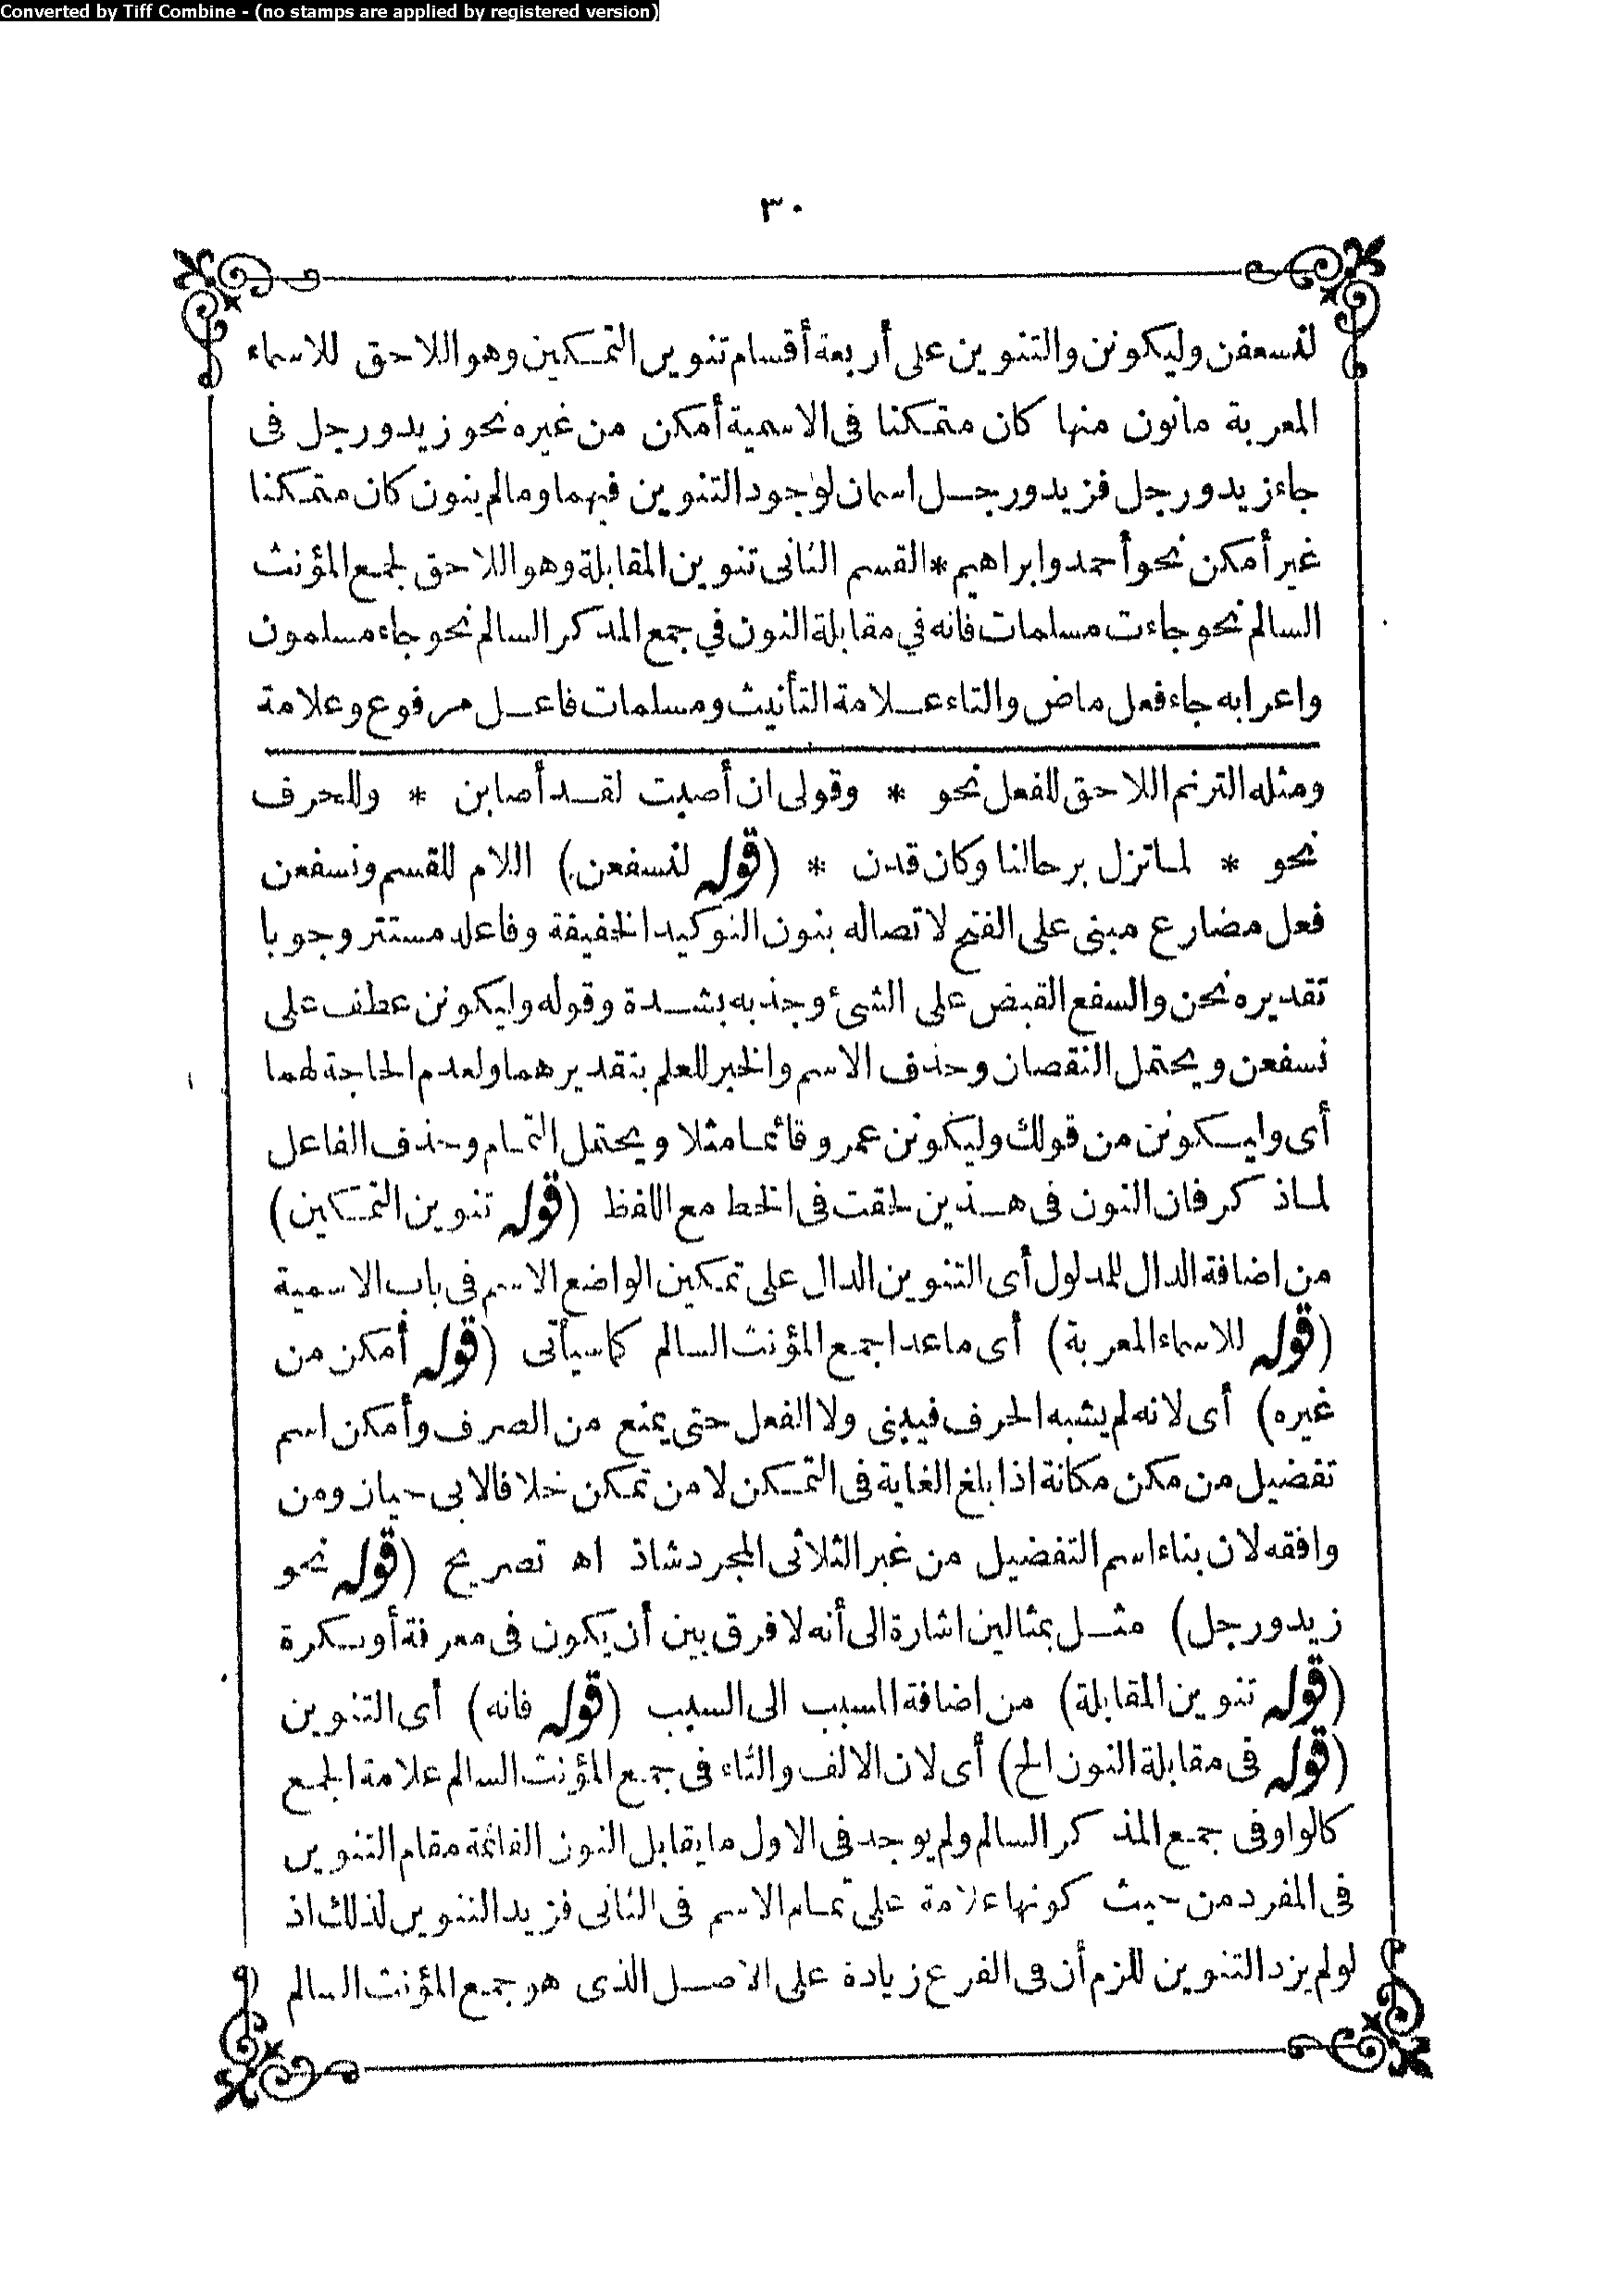 Converted by Tiff Combine - (no stamps are applied by registered version)
٣٠
لنسعفن وليكونن والتنوين على أربعة أقسام تنوين التمكين وهو اللاحق للاسماء
المعربة مانون منها كان متمكنا فى الاسمية أمكن من غيره نحو زيد ورجل فى
جاء زيد ورجل فزيد ورجل اسمان لوجود التنوين فيهما ومالم ينون كان متمكنا
غير أمكن نحو أحمد وابراهيم * القسم الثانى تنوين المقابلة وهو اللاحق لجمع المؤنث
السالم نحو جاءت مسلمات فانه في مقابلة النون في جمع المذكر السالم نحو جاء مسلمون
واعرابه جاء فعل ماض والتاء علامة التأنيث ومسلمات فاعل مرفوع وعلامة
ومثله الترنم اللاحق للفعل نحو * وقولى ان أصبت لقد أصابن * وللحرف
نحو * لما تزل برحالنا وكان قدن * (قوله لنسفعن) اللام للقسم ونسفعن
فعل مضارع مبنى على الفتح لاتصاله بنون التوكيد الخفيفة وفاعله مستتر وجوبا
تقديره نحن والسفع القبض على الشئ وجذبه بشدة وقوله وليكونن عطف على
نسفعن ويحتمل النقصان وحذف الاسم والخبر للعلم بتقديرهما ولعدم الحاجة لهما
أى وليكونن من قولك وليكونن عمرو قائما مثلا ويحتمل التمام وحذف الفاعل
لماذكر فان النون فى هذين لحقت فى الخط مع اللفظ (قوله تنوين التمكين)
من اضافة الدال للمدلول أى التنوين الدال على تمكين الواضع الاسم فى باب الاسمية
(قوله للاسماء المعربة) أى ماعدا جمع المؤنث السالم كما سيأتى (قوله أمكن من
غيره) أى لانه لم يشبه الحرف فيبنى ولا الفعل حتى يمنع من الصرف وأمكن اسم
تفضيل من مكن مكانة اذا بلغ الغاية فى التمكن لا من تمكن خلافا لابى حيان ومن
وافقه لان بناء اسم التفضيل من غير الثلاثى المجرد شاذ اه تصريح (قوله نحو
زيد ورجل) مثل بمثالين اشارة الى أنه لا فرق بين أن يكون فى معرفة أو نكرة
(قوله تنوين المقابلة) من اضافة المسبب الى السبب (قوله فانه) أى التنوين
(قوله فى مقابلة النون الخ) أى لان الالف والتاء فى جمع المؤنث السالم علامة الجمع
كالواو فى جمع المذكر السالم ولم يوجد فى الاول ما يقابل النون القائمة مقام التنوين
فى المفرد من حيث كونها علامة على تمام الاسم فى الثانى فزيد التنوين لذلك اذ
لو لم يزد التنوين للزم أن فى الفرع زيادة على الاصل الذى هو جمع المؤنث السالم